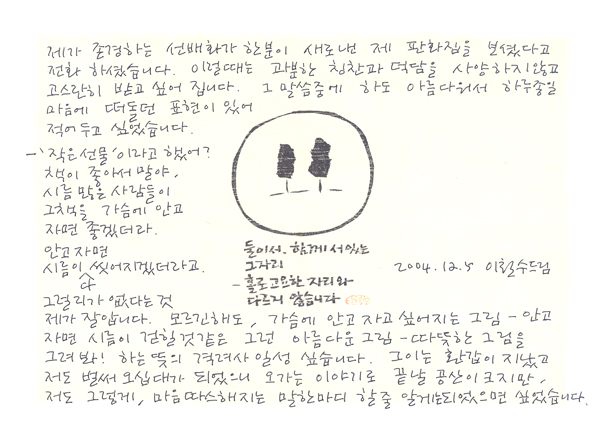 제가 존경하는 선배화가 한분이 새로낸 제 판화집을 보셨다고
전화 하셨습니다. 이럴때는 과분한 칭찬과 덕담을 사양하지 않고
고스란히 받고 싶어 집니다. 그 말씀중에 하도 아름다워서 하루종일
마음에 떠돌던 표현이 있어
적어두고 싶었습니다.
-'작은선물'이라고 했어?
책이 좋아서 말야,
시름 많은 사람들이
그책을 가슴에 안고
자면 좋겠더라.
안고자면
시름이 다 씻어지겠더라고.
그럴리가 없다는 것
제가 잘압니다. 모르긴해도, 가슴에 안고 자고 싶어지는 그림 - 안고
자면 시름이 걷힐것같은 그런 아름다운 그림 - 따뜻한 그림을
그려봐! 하는 뜻의 격려사 일성 싶습니다. 그이는 환갑이 지났고
저도 벌써 오십대가 되었으니 오가는 이야기로 끝날 공산이 크지만,
저도 그렇게, 마음 따스해지는 말한마디 할줄 알게는되었으면 싶었습니다.
둘이서. 함께 서있는
그자리
- 홀로 고요한 자리와
다르지 않습니다
2004.12.5 이철수드림